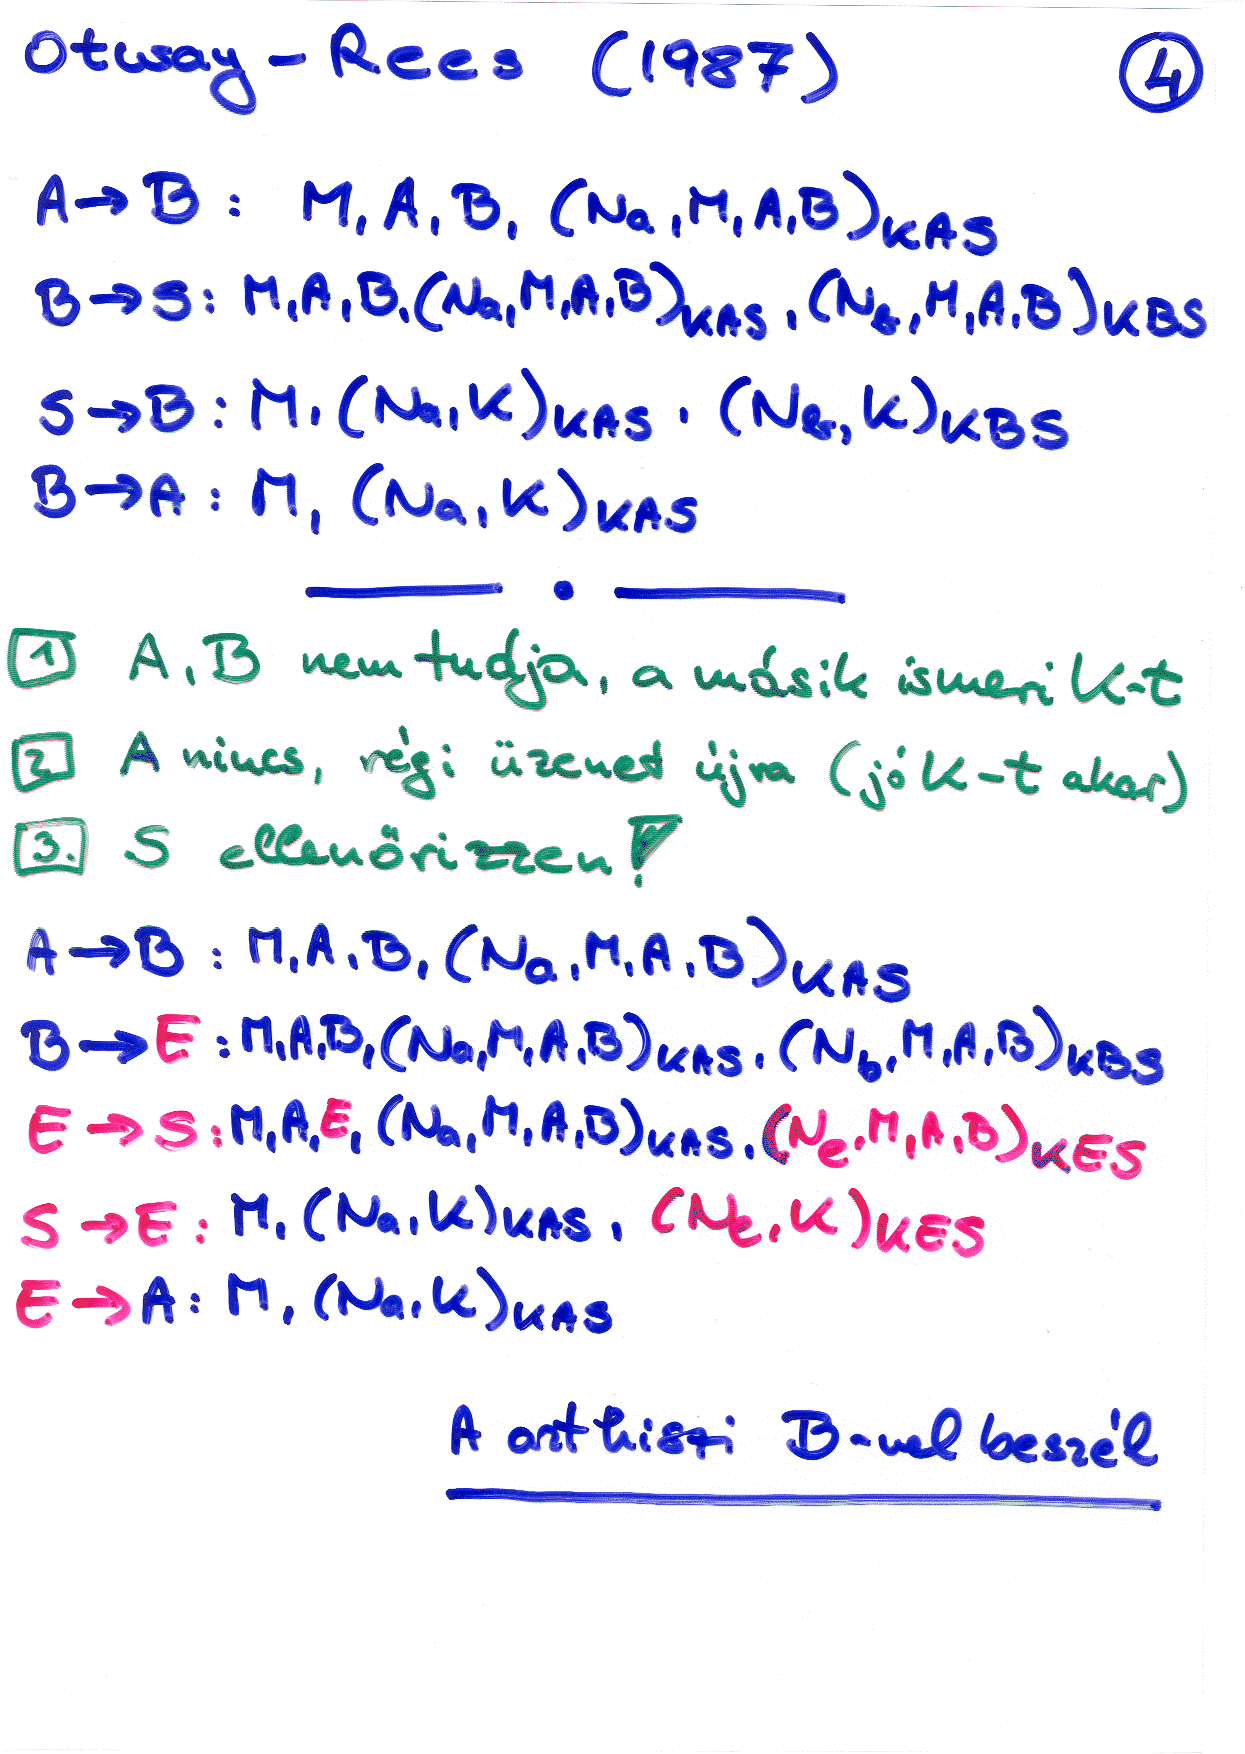 Otway - Rees (1987) 4
A → B : M, A, B, (Na, M, A, B)KAS
B → S : M, A, B, (Na, M, A, B)KAS, (Nb, M, A, B)KBS
S → B : M, (Na, K)KAS, (Nb, K)KBS
B → A : M, (Na, K)KAS
1 A, B nem tudja, a másik ismeri K-t
2 A nincs, régi üzenet újra (jó K-t akar)
3. S ellenőrizzen!
A → B : M, A, B, (Na, M, A, B)KAS
B → E : M, A, B, (Na, M, A, B)KAS, (Nb, M, A, B)KBS
E → S : M, A, E, (Na, M, A, B)KAS, (Ne, M, A, B)KES
S → E : M, (Na, K)KAS, (Ne, K)KES
E → A : M, (Na, K)KAS
A azt hiszi B-vel beszél